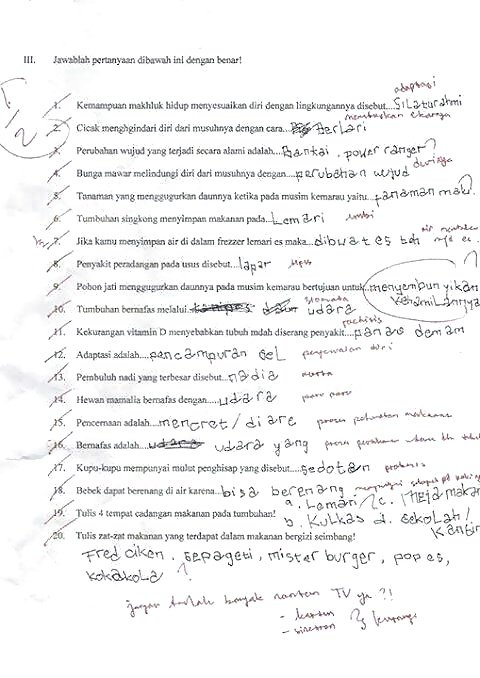 III. Jawablah pertanyaan dibawah ini dengan benar!
adaptasi
1. Kemampuan makhluk hidup menyesuaikan diri dengan lingkungannya disebut...Silaturahmi
2. Cicak menghgindari diri dari musuhnya dengan cara... Berlari
3. Perubahan wujud yang terjadi secara alami adalah...Bantai. power ranger?
4. Bunga mawar melindungi diri dari musuhnya dengan...perubahan wujud
durinya
5. Tanaman yang menggugurkan daunnya ketika pada musim kemarau yaitu...
6. Tumbuhan singkong menyimpan makanan pada...Lemari umbi
7. Jika kamu menyimpan air di dalam frezzer lemari es maka...dibuat es teh
8. Penyakit peradangan pada usus disebut...lapar tipus
9. Pohon jati menggugurkan daunnya pada musim kemarau bertujuan untuk...menyembunyikan kehamilannya
stomata
10. Tumbuhan bernafas melalui... udara
11. Kekurangan vitamin D menyebabkan tubuh mdah diserang penyakit...panas demam
12. Adaptasi adalah...pencampuran Gel penyesuaian diri
13. Pembuluh nadi yang terbesar disebut...nadia aorta
14. Hewan mamalia bernafas dengan...udara paru paru
15. Pencernaan adalah...mencret/diare proses makanan
16. Bernafas adalah... udara yang
17. Kupu-kupu mempunyai mulut penghisap yang disebut...sedotan probosis
18. Bebek dapat berenang di air karena...bisa berenang
19. Tulis 4 tempat cadangan makanan pada tumbuhan!
a. Lemari c. meja makan
b. kulkas d. sekolah/kantin
20. Tulis zat-zat makanan yang terdapat dalam makanan bergizi seimbang!
Fred ciken, sepageti, mister burger, popes,
kokakola ?
jangan banyak nonton TV ya ?!
- kartun
- sinetron